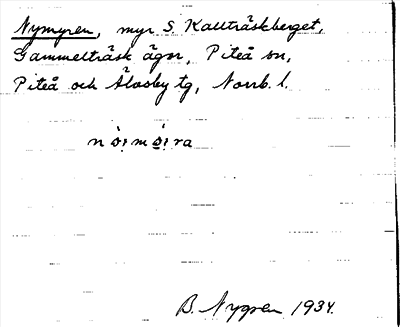 Nymyren, myr S Kallträskberget,
Gammelträsk ägor, Piteå sn,
Piteå och Älvsby tg, Norrb. l.
B. Nygren 1934.